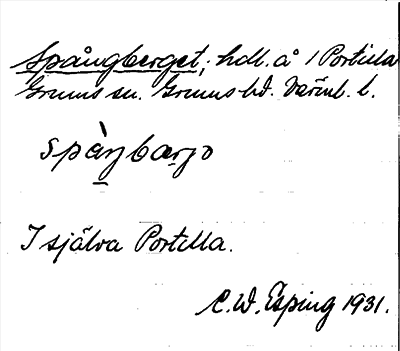 Spångberget; hdl. å 1 Portilla
Grums sn. Grums hd. Värml. l.
spàŋbærjə
I själva Portilla.
C.W. Esping 1931.